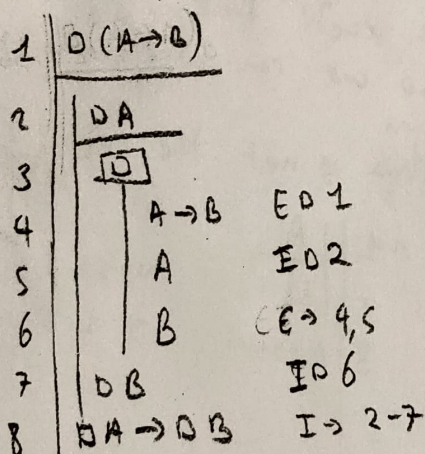 1 □(A→B)
2 □A
3 □
4 A→B E□1
5 A E□2
6 B E→4,5
7 □B I□6
8 □A→□B I→2-7